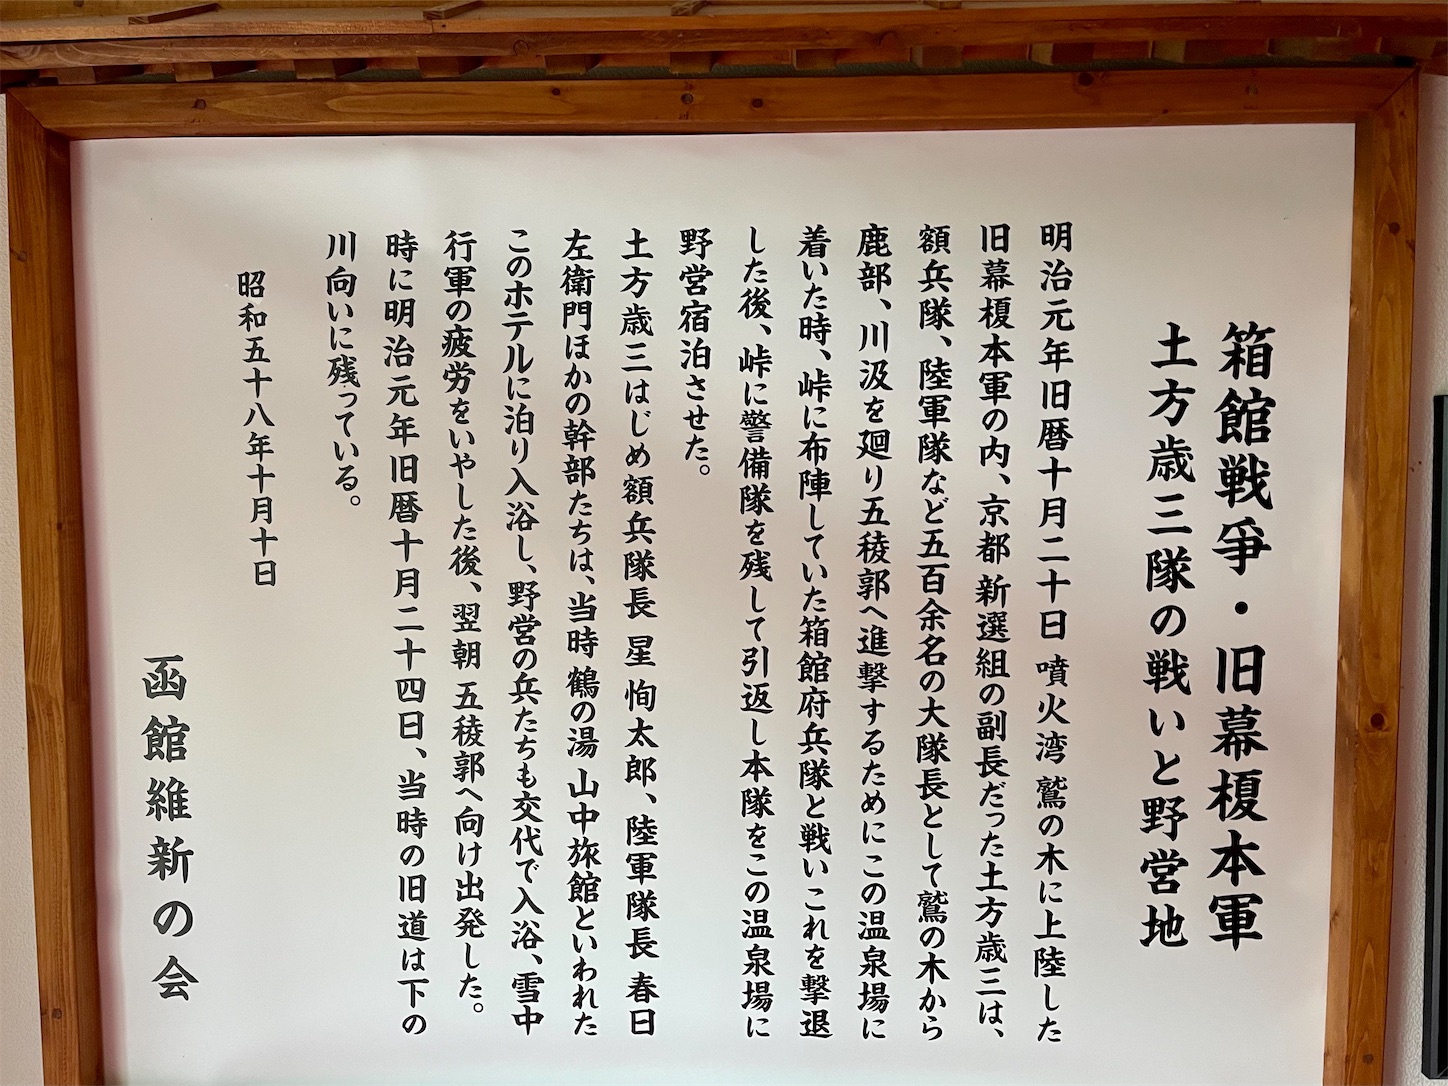 箱館戦争・旧幕榎本軍
土方歳三隊の戦いと野営地
明治元年旧暦十月二十日 噴火湾 鷲の木に上陸した
旧幕榎本軍の内、京都 新選組の副長だった土方歳三は、
額兵隊、陸軍隊など五百余名の大隊長として鷲の木から
鹿部、川汲を廻り五稜郭へ進撃するためにこの温泉場に
着いた時、峠に布陣していた箱館府兵隊と戦いこれを撃退
した後、峠に警備隊を残して引返し本隊をこの温泉場に
野営宿泊させた。
土方歳三はじめ額兵隊長 星 恂太郎、陸軍隊長 春日
左衛門ほかの幹部たちは、当時 鶴の湯 山中旅館といわれた
このホテルに泊り入浴し、野営の兵たちも交代で入浴、雪中
行軍の疲労をいやした後、翌朝 五稜郭へ向け出発した。
時に明治元年旧暦十月二十四日、当時の旧道は下の
川向いに残っている。
昭和五十八年十月十日
函館維新の会